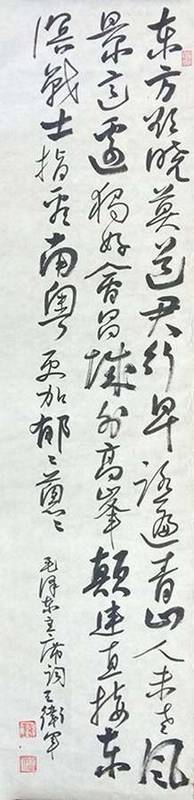 东方欲晓莫道君行早踏遍青山人未老风
景这边独好会昌城外高峰颠连直接东
溟战士指看南粤更加郁〻葱〻
毛泽东主席词王衛军